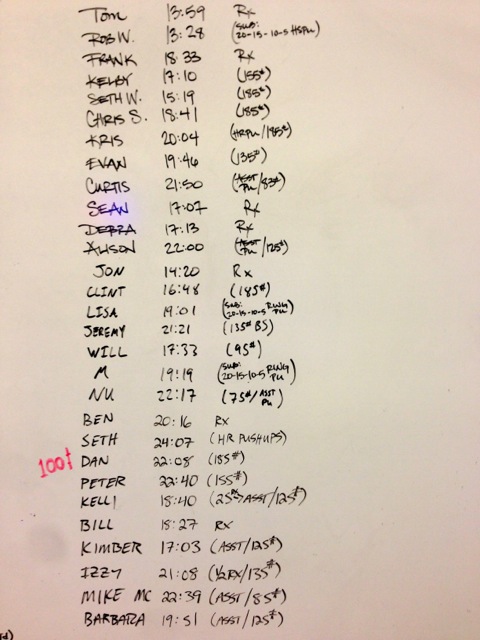 TOM 13:59 Rx
ROB W. 13:28 (SUB: 20-15-10-5 HSPU)
FRANK 18:33 Rx
KELBY 17:10 (155#)
SETH W. 15:19 (185#)
CHRIS S. 18:41 (185#)
KRIS 20:04 (HRPU/185#)
EVAN 19:46 (135#)
CURTIS 21:50 (ASST PU/83#)
SEAN 17:07 Rx
DEBRA 17:13 Rx
ALISON 22:00 (ASST PU/125#)
JON 14:20 Rx
CLINT 16:48 (185#)
LISA 19:01 (SUB: 20-15-10-5 RING PU)
JEREMY 21:21 (135# BS)
WILL 17:33 (95#)
M 19:19 (SUB: 20-15-10-5 RING PU)
NU 22:17 (75#/ASST PU)
BEN 20:16 Rx
SETH 24:07 (HR PUSHUPS)
100# DAN 22:08 (185#)
PETER 22:40 (155#)
KELLI 18:40 (25 ASST/125#)
BILL 18:27 Rx
KIMBER 17:03 (ASST/125#)
IZZY 21:08 (1/2 RX/135#)
MIKE MC 22:39 (ASST/85#)
BARBARA 19:51 (ASST/125#)